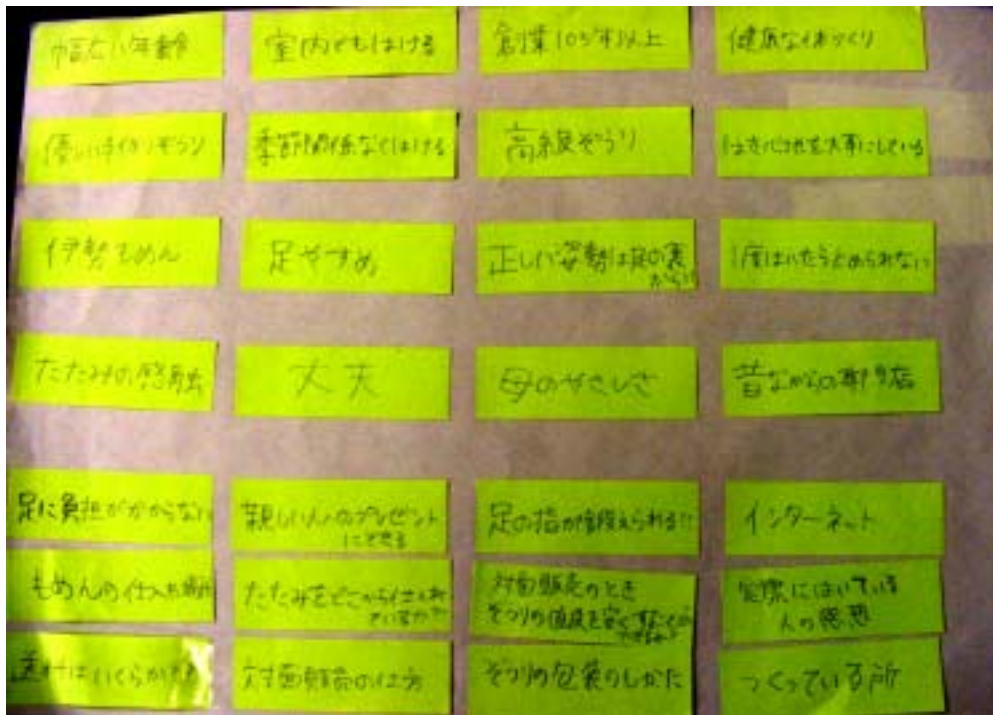 幅広い年齢
室内でもはける
創業105年以上
健康な体づくり
優しい手作りぞうり
季節関係なくはける
高級ぞうり
はき心地を大事にしている
伊勢もめん
足やすめ
正しい姿勢は足の裏
から!!
1度はいたらとめられない
たたみの感触
丈夫
母のやさしさ
昔ながらの専門店
足に負担がかからない
親しい人のプレゼント
にできる
足の指が鍛えられる!!
インターネット
もめんの仕入れ
たたみをどこから仕入れ
ているか?
対面販売のとき
ぞうりの値段を安く
実際にはいている
人の感想
送料はいくらかけ
対面販売の仕方
ぞうりの包装のしかた
つくっている所